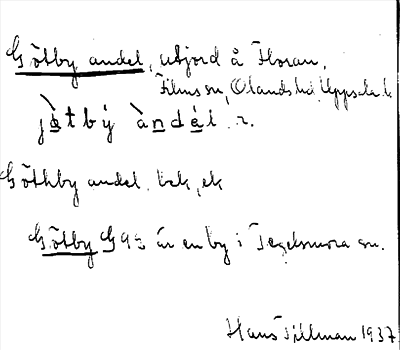 Götby andel, utjord å Floran,
Films sn, Olands hd, Uppsala l.
jö̀tbỳ àndél, r.
Göthby andel, bek, ek
Götby G93 är en by i Tegelsmora sn.
Hans Tillman 1937